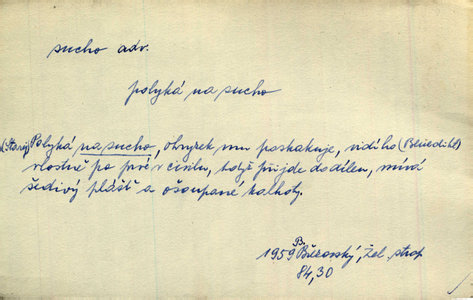 sucho adv.
polyká na sucho
(Starý) Polyká na sucho, ohryzek mu poskakuje, vidí ho (Benedikt)
vlastně po prvé v civilu, když přijde do dílen, mívá
šedivý plášť a ošoupané kalhoty.
1959 B. Březovský, Žel. strop
84,30